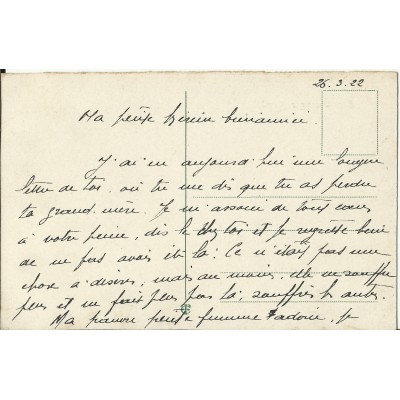 26.3.22
Ma petite bien aimée.
J'ai eu aujourd'hui une longue
lettre de toi où tu me dis que tu as perdu
ta grand-mère. Je m'associe de tout cœur
à votre peine, dis le chez toi et je regrette bien
de ne pas avoir été là. Ce n'était pas une
chose à désirer, mais au moins, elle ne souffre
plus et ne fait plus pas là, souffrir les autres.
Ma pauvre petite femme adorée, je